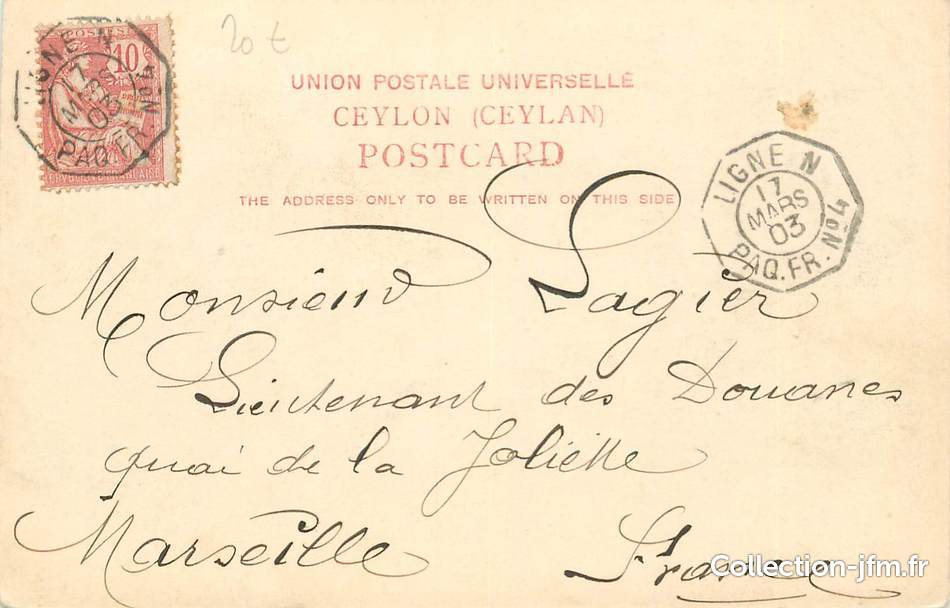 20 €
POSTES
10
LIGNE N
17
MARS
03
PAQ. FR. No 4
RÉPUBLIQUE FRANÇAISE
UNION POSTALE UNIVERSELLE
CEYLON (CEYLAN)
POSTCARD
THE ADDRESS ONLY TO BE WRITTEN ON THIS SIDE
LIGNE N
17
MARS
03
PAQ. FR. No 4
Monsieur Lagier
Lieutenant des Douanes
quai de la Joliette
Marseille France
Collection-jfm.fr